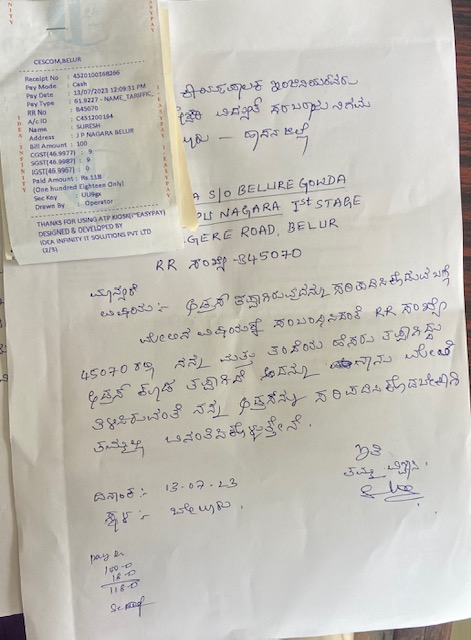 CESCOM,BELUR
Receipt No : 4520100368266
Pay Mode : Cash
Pay Date : 13/07/2023 12:09:31 PM
Pay Type : 61.9227 - NAME_TARIFFIC_
RR No : B45070
A/c ID : C451200164
Name : SURESH
Address : J P NAGARA BELUR
Bill Amount : 100
CGST(46.9977) : 9
SGST(46.9987) : 9
IGST(46.9967) : 0
Paid Amount : Rs.118
(One hundred Eighteen Only)
Sec Key : UU9gx
Drawn By : Operator
THANKS FOR USING ATP KIOSK("EASYPAY)
DESIGNED & DEVELOPED BY
IDEA INFINITY IT SOLUTIONS PVT LTD
(2/5)
IDEA INFINITY
EASYPAY
ಕಾರ್ಯಪಾಲಕ ಇಂಜಿನಿಯರವರು
ವಿದ್ಯುತ್ ಸರಬರಾಜು ನಿಗಮ
ಹಾಸನ ಜಿಲ್ಲೆ
A S/O BELURE GOWDA
NAGARA Ist STAGE
GERE ROAD, BELUR
RR ಸಂಖ್ಯೆ -B45070
ಮಾನ್ಯರೆ
ವಿಷಯ:- ಅಡ್ರಸ್ ತಪ್ಪಾಗಿರುವುದನ್ನು ಸರಿಪಡಿಸಿಕೊಡುವ ಬಗ್ಗೆ
ಮೇಲಿನ ವಿಷಯಕ್ಕೆ ಸಂಬಂಧಿಸಿದಂತೆ RR ಸಂಖ್ಯೆ
45070 ರಲ್ಲಿ ನನ್ನ ಮತ್ತು ತಂದೆಯ ಹೆಸರು ತಪ್ಪಾಗಿದ್ದು
ಅಡ್ರಸ್ ಕೂಡ ತಪ್ಪಾಗಿದೆ ಅದನ್ನು ನಾನು ಮೇಲೆ
ತಿಳಿಸಿರುವಂತೆ ನನ್ನ ಅಡ್ರಸನ್ನು ಸರಿಪಡಿಸಿಕೊಡಬೇಕಾಗಿ
ತಮ್ಮಲ್ಲಿ ವಿನಂತಿಸಿಕೊಳ್ಳುತ್ತೇನೆ.
ಇತಿ
ತಮ್ಮ ವಿಶ್ವಾಸಿ.
ದಿನಾಂಕ :- 13-07-23
ಸ್ಥಳ :- ಬೇಲೂರು.
100-0
18-0
118-0